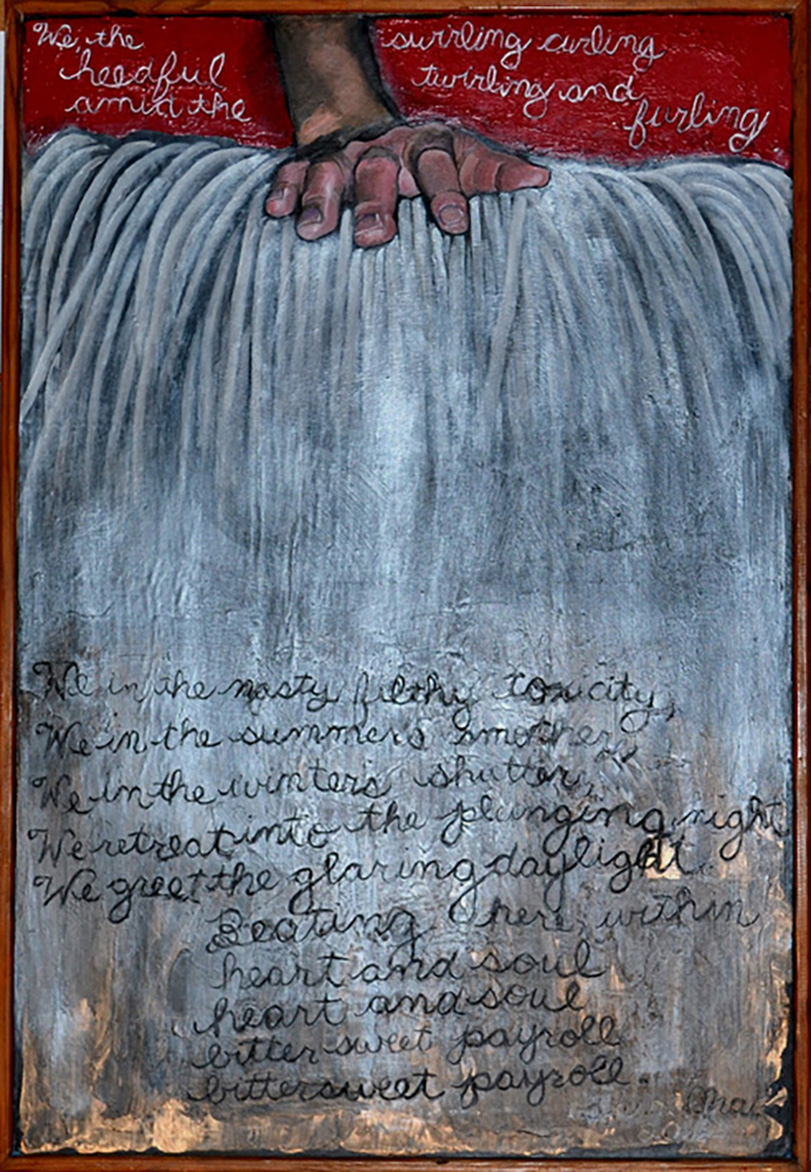 We, the
heedful
amid the
swirling curling
twirling and
furling
We in the nasty filthy toxicity,
We in the summers smother,
We in the winters shutter,
We retreat into the plunging night
We greet the glaring daylight
Beating here, within
heart and soul
heart and soul
bittersweet payroll
bittersweet payroll.